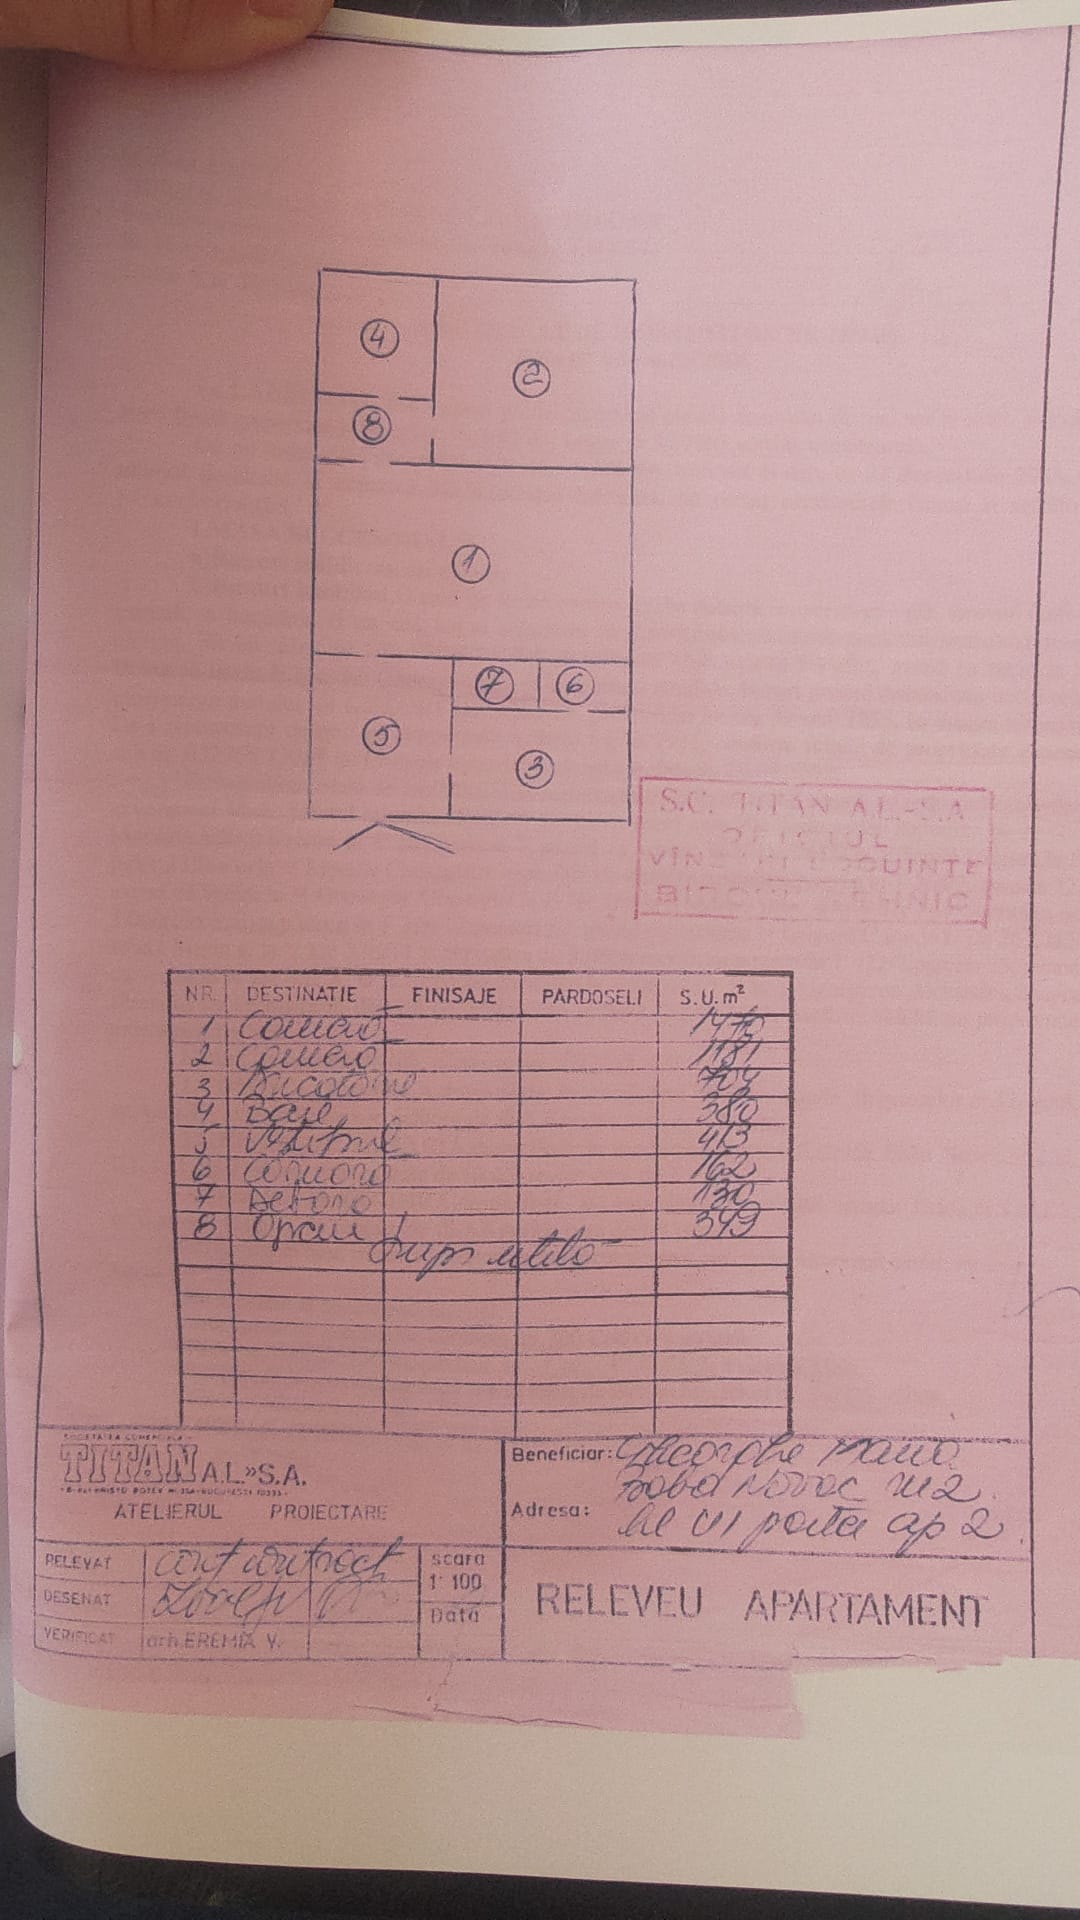 4
2
8
1
7 6
5
3
S.C. TITAN A.L.-S.A
OFICIUL
BIROUL TEHNIC
NR. DESTINATIE FINISAJE PARDOSELI S.U.m²
1 Cameră 1470
2 Cameră 1181
3 Bucătărie 704
4 Baie 380
5 Vestibul 413
6 Cămară 162
7 Debara 130
8 Oficiu 349
utilă
SOCIETATEA COMERCIALA
TITAN A.L.»S.A.
ATELIERUL PROIECTARE
Beneficiar: Gheorghe Maria
Baba Novac
Adresa: parter ap 2
RELEVAT conf contract
DESENAT
VERIFICAT arh. EREMIA V.
scara
1:100
Data
RELEVEU APARTAMENT